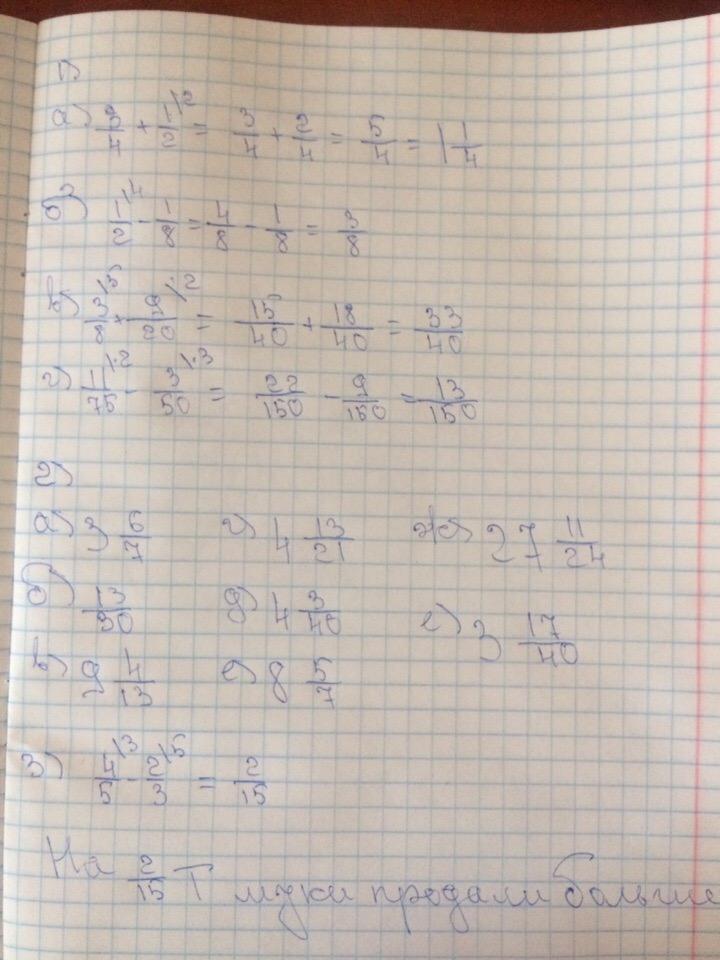 1)
а) 3/4 + 1/2 \2 = 3/4 + 2/4 = 5/4 = 1 1/4
б) 1/2 \4 - 1/8 = 4/8 - 1/8 = 3/8
в) 3/8 \5 + 9/20 \·2 = 15/40 + 18/40 = 33/40
г) 11/75 \·2 - 3/50 \·3 = 22/150 - 9/150 = 13/150
2)
а) 3 6/7 г) 4 13/21 ж) 27 11/24
б) 13/30 д) 4 3/40 е) 3 17/40
в) 9 4/13 е) 8 5/7
3) 4/5 \3 - 2/3 \5 = 2/15
На 2/15 Т муки продали больше